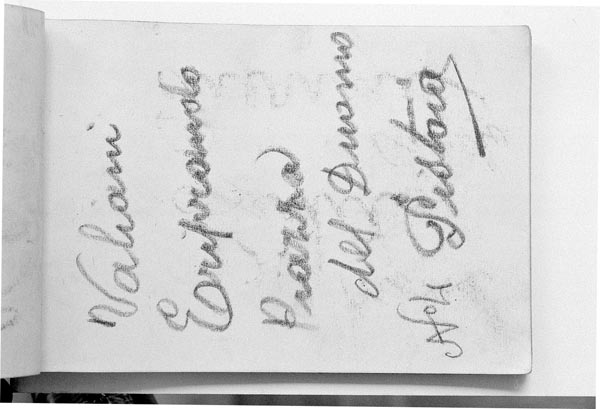 Valiani
Eriprando
Piazza
del Duomo
Nº 4 Pistoia